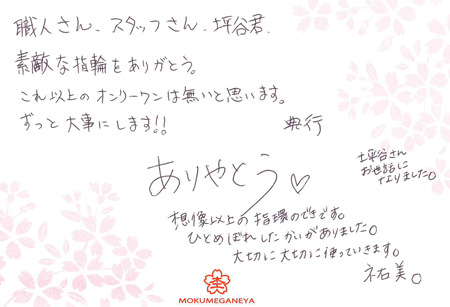 職人さん、スタッフさん、坪谷君、
素敵な指輪をありがとう。
これ以上のオンリーワンは無いと思います。
ずっと大事にします!!
典行
ありがとう♡
坪谷さん
お世話に
なりました。
想像以上の指環のできです。
ひとめぼれしたかいがありました。
大切に大切に使っていきます。
祐美。
MOKUMEGANEYA